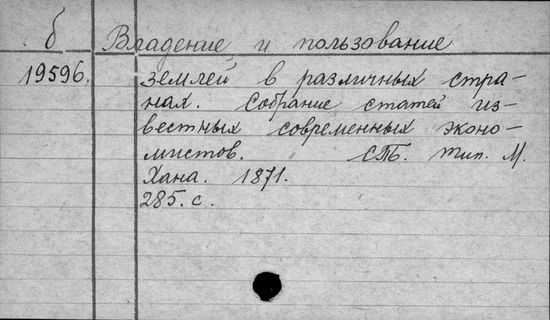 б Владение и пользование
19596. землей в различных стра-
нах. Собрание статей из-
вестных современных эконо-
мистов. СПБ. тип. М.
Хана. 1871.
285. с.